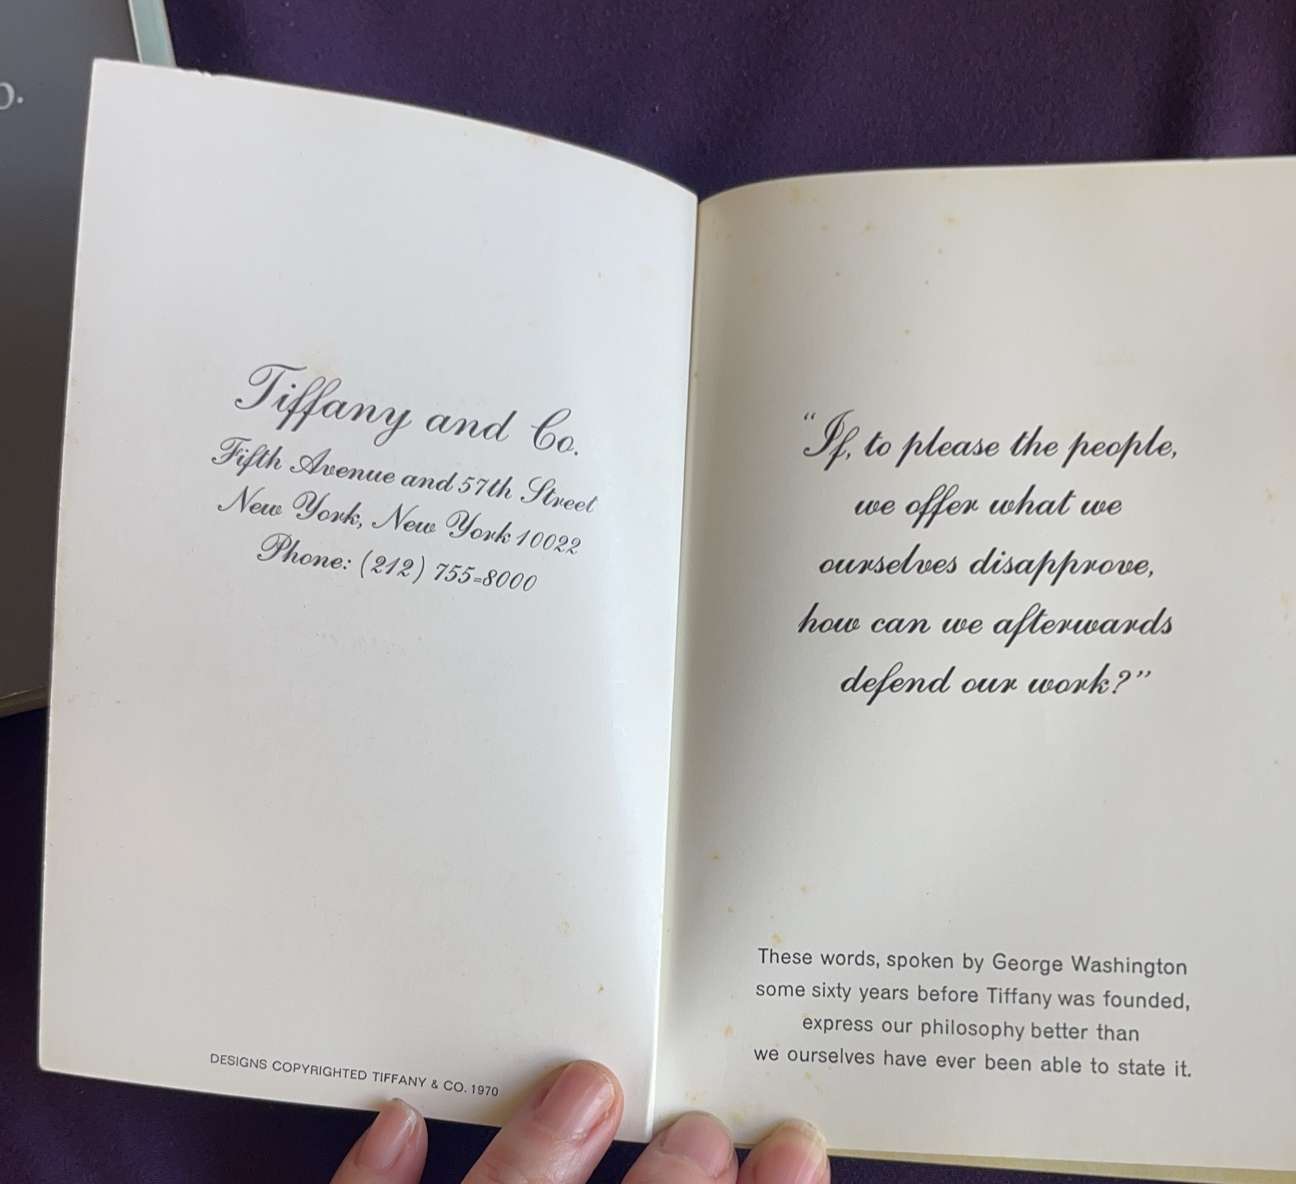 Tiffany and Co.
Fifth Avenue and 57th Street
New York, New York 10022
Phone: (212) 755-8000
DESIGNS COPYRIGHTED TIFFANY & CO. 1970
“If, to please the people,
we offer what we
ourselves disapprove,
how can we afterwards
defend our work?”
These words, spoken by George Washington
some sixty years before Tiffany was founded,
express our philosophy better than
we ourselves have ever been able to state it.